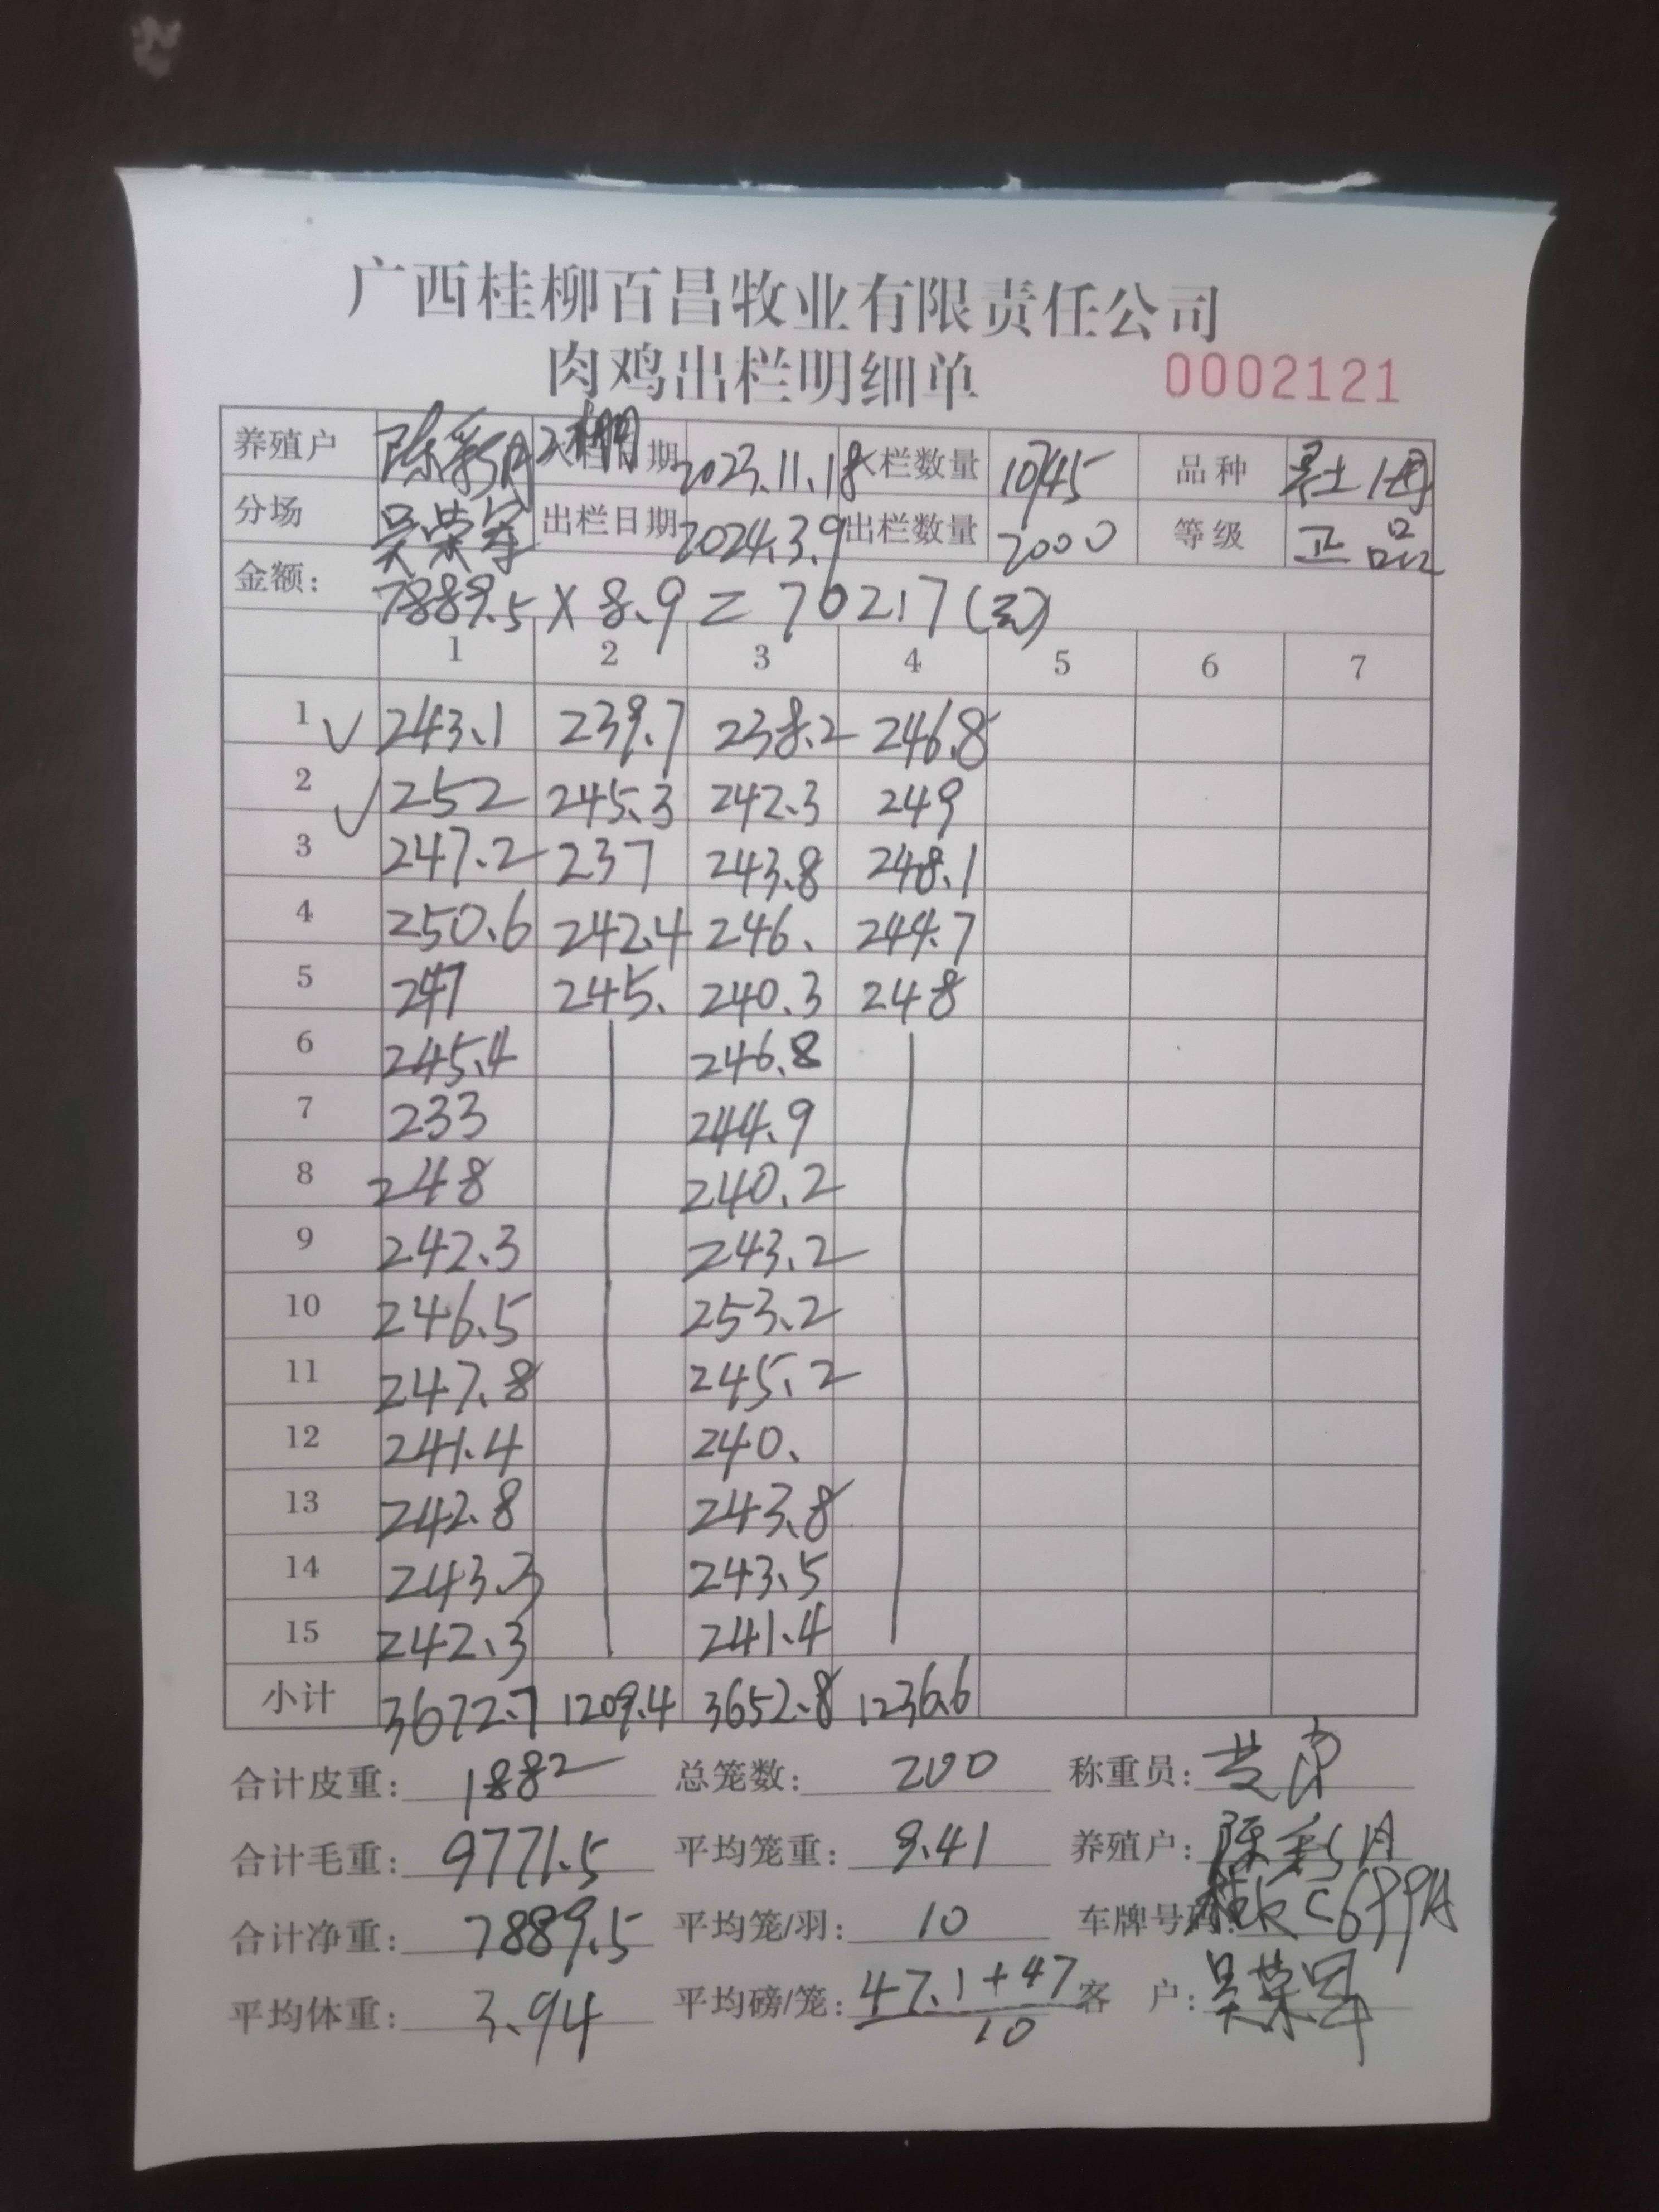 广西桂柳百昌牧业有限责任公司
肉鸡出栏明细单 0002121
养殖户 陈彩月2棚 入栏日期 2023.11.18 入栏数量 10745 品种
分场 吴荣军 出栏日期 2024.3.9 出栏数量 2000 等级 正品
金额: 7889.5 X 8.9 = 70217(元)
1 2 3 4 5 6 7
1 243.1 239.7 238.2 246.8
2 252 245.3 242.3 249
3 247.2 237 243.8 248.1
4 250.6 242.4 246. 244.7
5 247 245. 240.3 248
6 245.4 246.8
7 233 244.9
8 248 240.2
9 242.3 243.2
10 246.5 253.2
11 247.8 245.2
12 241.4 240.
13 242.8 243.8
14 243.3 243.5
15 242.3 241.4
小计 3672.7 1209.4 3652.8 1236.6
合计皮重: 1882 总笼数: 200 称重员:
合计毛重: 9771.5 平均笼重: 9.41 养殖户: 陈彩月
合计净重: 7889.5 平均笼/羽: 10 车牌号码:
平均体重: 3.94 平均磅/笼: 47.1+47 客 户: 吴荣军
10